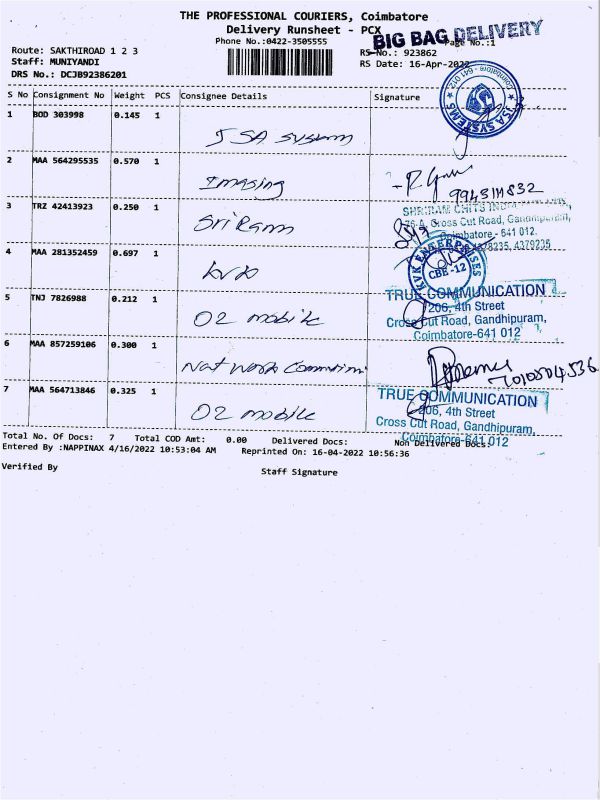 THE PROFESSIONAL COURIERS, Coimbatore
Delivery Runsheet - PCX
BIG BAG DELIVERY
Phone No.:0422-3505555
Page No.:1
Route: SAKTHIROAD 1 2 3
RS No.: 923862
Staff: MUNIYANDI
RS Date: 16-Apr-2022
DRS No.: DCJB92386201
S No Consignment No Weight PCS Consignee Details Signature
1 BOD 303998 0.145 1
JSA SYSTEMS
JSA system
2 MAA 564295535 0.570 1
Imasing
9943111832
3 TRZ 42413923 0.250 1
Sri Ram
SHRIRAM CHITS
Cross Cut Road, Gandhipuram,
Coimbatore - 641 012.
4378235, 4379235
4 MAA 281352459 0.697 1
kvk
KVK ENTERPRISES
CBE-12
5 TNJ 7826988 0.212 1
O2 mobile
TRUE COMMUNICATION
206, 4th Street
Cross Cut Road, Gandhipuram,
Coimbatore-641 012
6 MAA 857259106 0.300 1
Natwork
7 MAA 564713846 0.325 1
O2 mobile
TRUE COMMUNICATION
206, 4th Street
Cross Cut Road, Gandhipuram,
Coimbatore-641 012
Total No. Of Docs: 7 Total COD Amt: 0.00 Delivered Docs: Non Delivered Docs:
Entered By :NAPPINAX 4/16/2022 10:53:04 AM Reprinted On: 16-04-2022 10:56:36
Verified By
Staff Signature